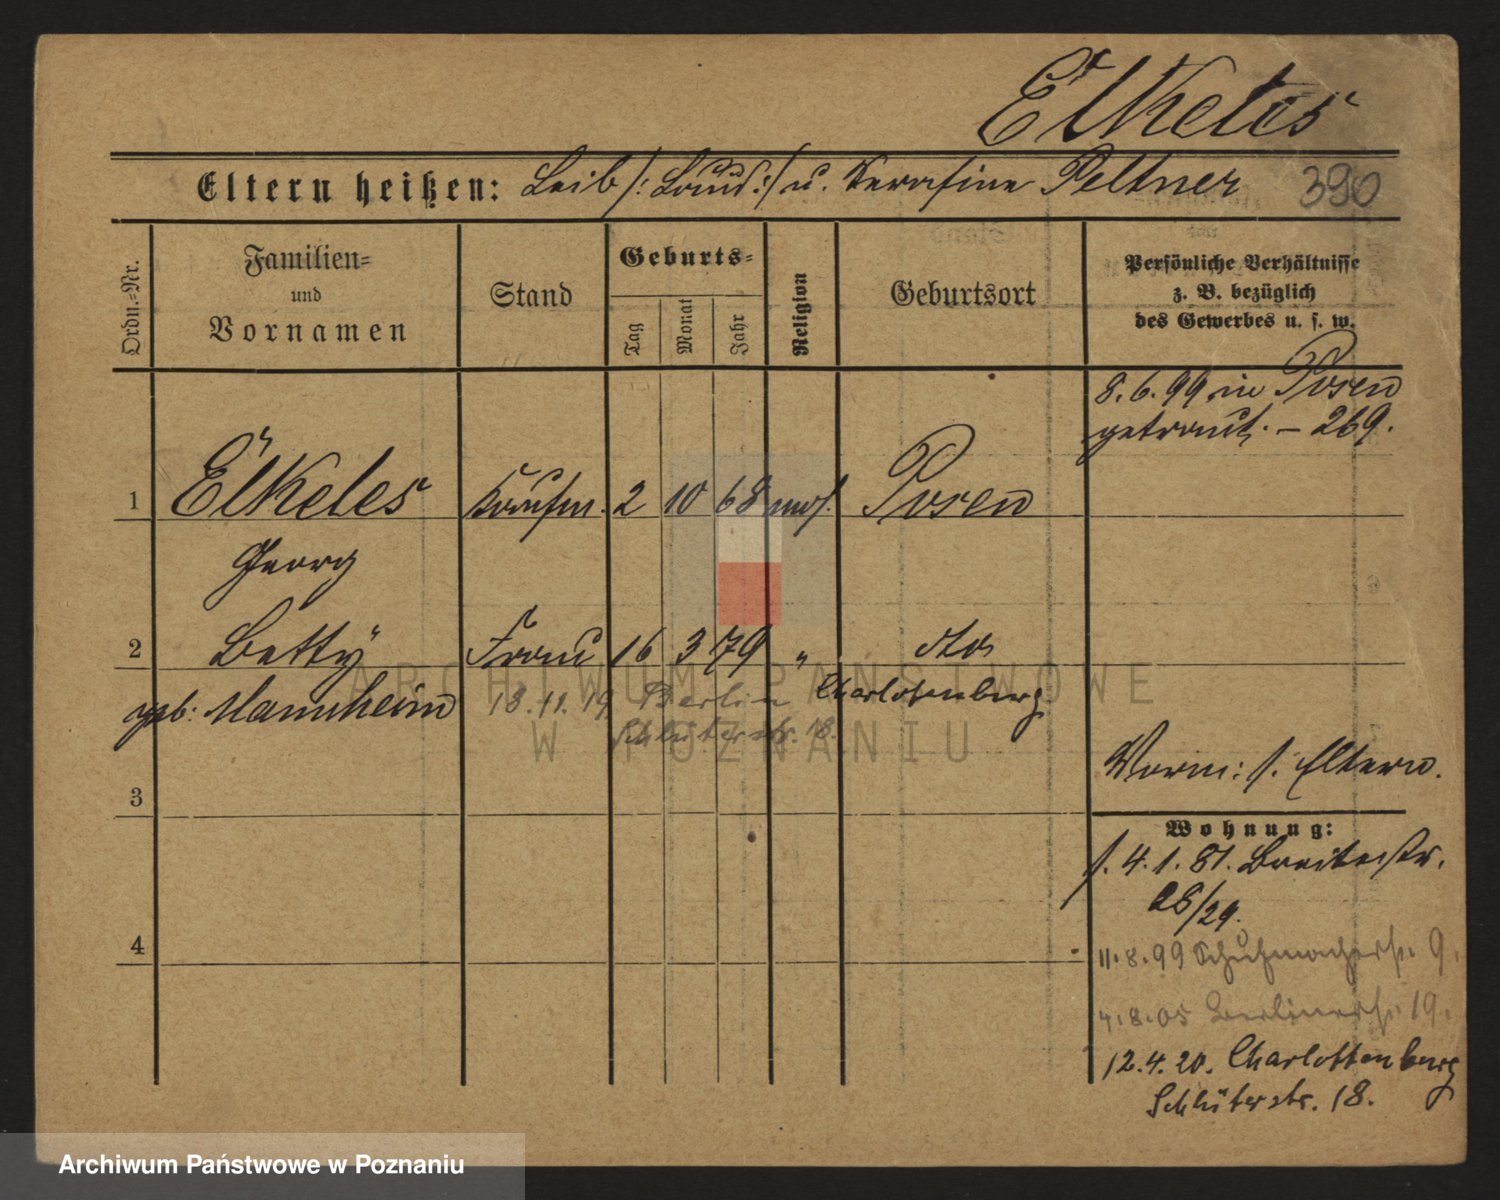 Elkeles
Eltern heißen: Leib /: Louis :/ u. Serafine Peltner 390
Ordn.=Nr.
Familien=
und
Vornamen
Stand
Geburts=
Tag
Monat
Jahr
Religion
Geburtsort
Persönliche Verhältnisse
z. B. bezüglich
des Gewerbes u. s. w.
8. 6. 99 in Posen
getraut. – 269.
1 Elkeles Kaufm. 2 10 68 mos. Posen
Georg
2 Betty Frau 16 3 79 " dto
geb: Mannheim 18. 11. 19 Berlin Charlottenburg
Schlüterstr. 18.
Vorm: s. Eltern.
3
Wohnung:
s. 4. 1. 81. Breitestr.
28/29.
4
11. 8. 99 Schuhmacherstr. 9.
4. 8. 05 Berlinerstr. 19.
12. 4. 20. Charlottenburg
Schlüterstr. 18.
ARCHIWUM PAŃSTWOWE
W POZNANIU
Archiwum Państwowe w Poznaniu